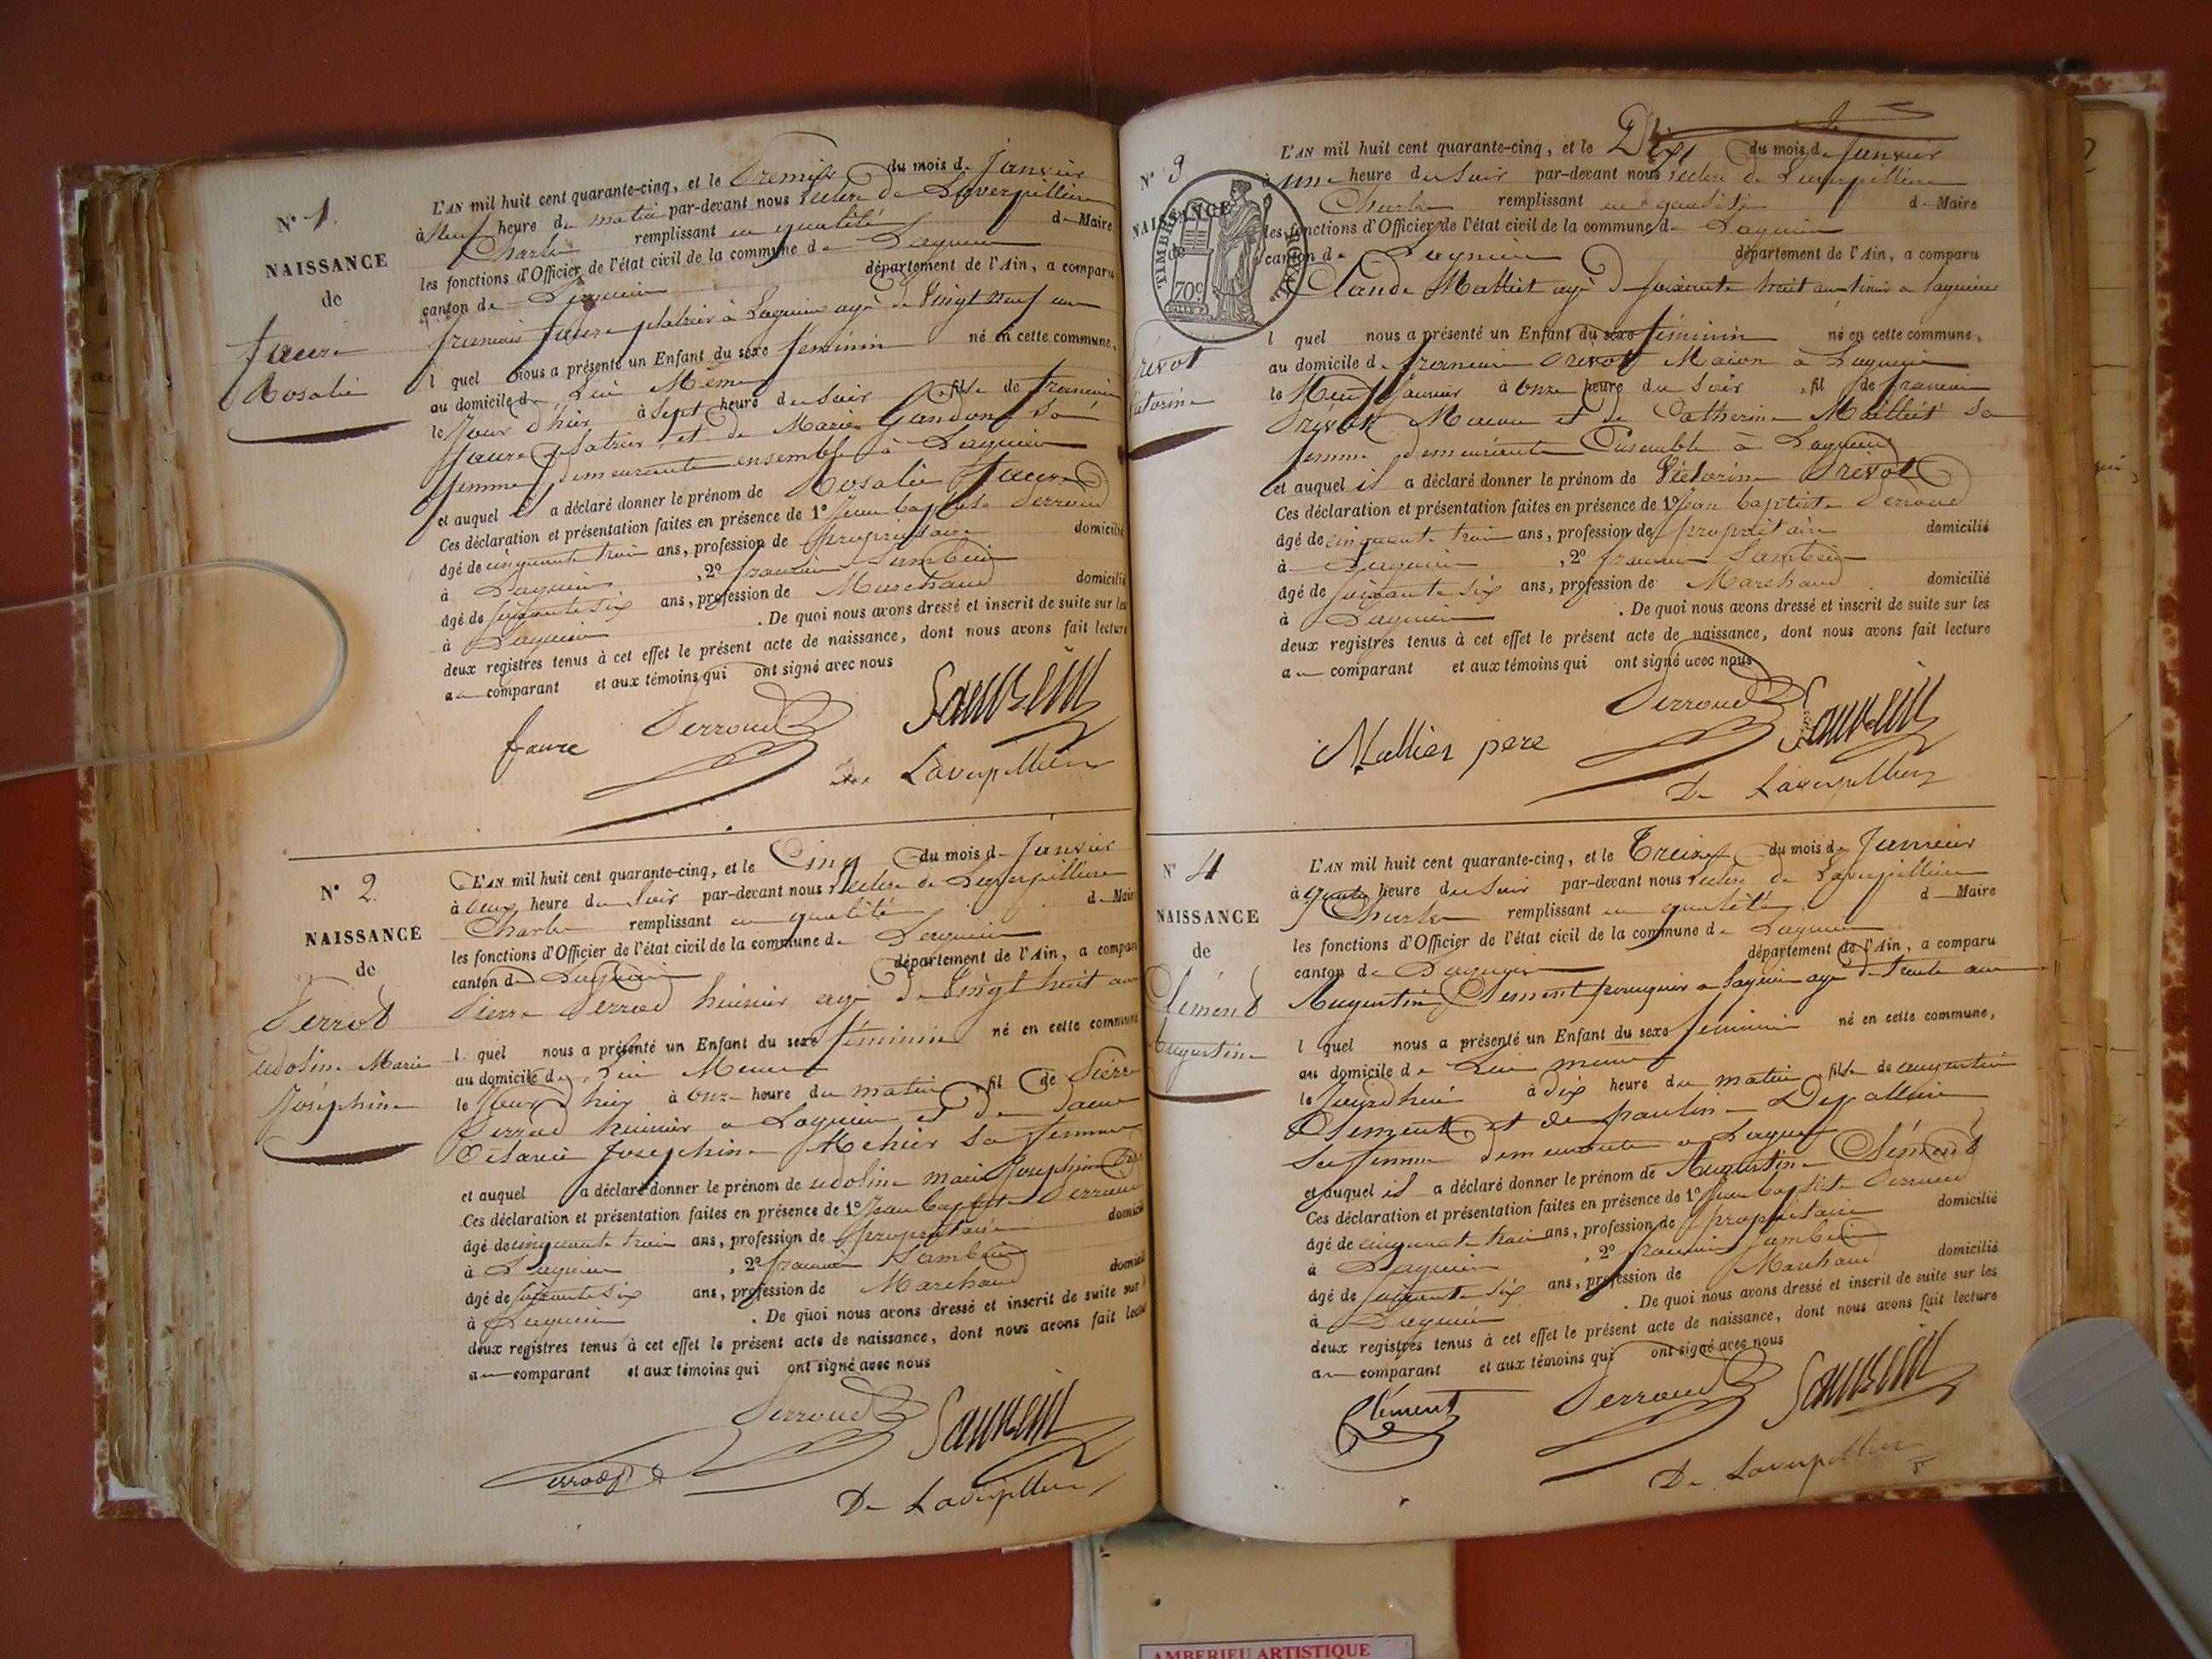 N° 1.
NAISSANCE
de
faure
Rosalie
L'AN mil huit cent quarante-cinq, et le Premier du mois de Janvier
à Neuf heure du matin par-devant nous de Laverpillière
Charles remplissant en qualité de Maire
les fonctions d'Officier de l'état civil de la commune de Lagnieu
canton de Lagnieu département de l'Ain, a comparu
françois faure platrier à Lagnieu agé de Vingt neuf ans
l quel nous a présenté un Enfant du sexe féminin né en cette commune,
au domicile de Lui Même
le Jour d'hier à Sept heure du Soir fille de françois
faure platrier et de Marie Gandon sa
femme demeurants ensemble à Lagnieu
et auquel il a déclaré donner le prénom de Rosalie faure
Ces déclaration et présentation faites en présence de 1° Jean baptiste Perroud
âgé de cinquante trois ans, profession de propriétaire domicilié
à Lagnieu , 2° françois
âgé de soixante six ans, profession de Marchand domicilié
à Lagnieu . De quoi nous avons dressé et inscrit de suite sur les
deux registres tenus à cet effet le présent acte de naissance, dont nous avons fait lecture
au comparant et aux témoins qui ont signé avec nous
faure Perroud
De Laverpillière
N° 2.
NAISSANCE
de
Perrod
udoline Marie
Joséphine
L'AN mil huit cent quarante-cinq, et le Cinq du mois de Janvier
à deux heure du Soir par-devant nous de Laverpillière
Charles remplissant en qualité de Maire
les fonctions d'Officier de l'état civil de la commune de Lagnieu
canton de Lagnieu département de l'Ain, a comparu
Pierre Perrod huissier agé de Vingt huit ans
l quel nous a présenté un Enfant du sexe féminin né en cette commune
au domicile de Lui Meme
le Jour d'hier à onze heure du matin fil de Pierre
Perrod huissier a Lagnieu et de
Octavie Josephine Mehier Sa femme
et auquel a déclaré donner le prénom de udoline marie Josephine
Ces déclaration et présentation faites en présence de 1° Jean baptiste Perroud
âgé de cinquante trois ans, profession de propriétaire domicilié
à Lagnieu , 2° françois
âgé de soixante six ans, profession de Marchand domicilié
à Lagnieu . De quoi nous avons dressé et inscrit de suite sur
deux registres tenus à cet effet le présent acte de naissance, dont nous avons fait lecture
au comparant et aux témoins qui ont signé avec nous
Perroud
De Laverpillière
N° 3
NAISSANCE
de
TIMBRE ROYAL
70c
Prévot
Victorine
L'AN mil huit cent quarante-cinq, et le Dix du mois de Janvier
à une heure du Soir par-devant nous de Laverpillière
Charles remplissant en qualité de Maire
les fonctions d'Officier de l'état civil de la commune de Lagnieu
canton de Lagnieu département de l'Ain, a comparu
Claude Malliet agé de soixante huit ans a Lagnieu
l quel nous a présenté un Enfant du sexe féminin né en cette commune,
au domicile de françois Prevot Maçon à Lagnieu
le Neuf Janvier à onze heure du Soir , fil de françois
Prévot Maçon et de Catherine Mailliet Sa
femme demeurants Ensemble à Lagnieu
et auquel il a déclaré donner le prénom de Victorine Prévot
Ces déclaration et présentation faites en présence de 1° Jean baptiste Perroud
âgé de cinquante trois ans, profession de propriétaire domicilié
à Lagnieu , 2° françois
âgé de soixante six ans, profession de Marchand domicilié
à Lagnieu . De quoi nous avons dressé et inscrit de suite sur les
deux registres tenus à cet effet le présent acte de naissance, dont nous avons fait lecture
au comparant et aux témoins qui ont signé avec nous
Mallier pere Perroud
De Laverpillière
N° 4
NAISSANCE
de
Clémend
Augustine
L'AN mil huit cent quarante-cinq, et le Treize du mois de Janvier
à quatre heure du Soir par-devant nous de Laverpillière
Charles remplissant en qualité de Maire
les fonctions d'Officier de l'état civil de la commune de Lagnieu
canton de Lagnieu département de l'Ain, a comparu
Augustin Clement perruquier a Lagnieu agé de Trente ans
l quel nous a présenté un Enfant du sexe feminin né en cette commune,
au domicile de Lui meme
le Jourdhui à dix heure du matin , fille de augustin
Clement et de pauline
Sa femme demeurants a Lagnieu
et auquel il a déclaré donner le prénom de Augustine Clémend
Ces déclaration et présentation faites en présence de 1° Jean baptiste Perroud
âgé de cinquante trois ans, profession de propriétaire domicilié
à Lagnieu , 2° françois
âgé de soixante six ans, profession de Marchand domicilié
à Lagnieu . De quoi nous avons dressé et inscrit de suite sur les
deux registres tenus à cet effet le présent acte de naissance, dont nous avons fait lecture
au comparant et aux témoins qui ont signé avec nous
Clément Perroud
De Laverpillière
AMBERIEU ARTISTIQUE